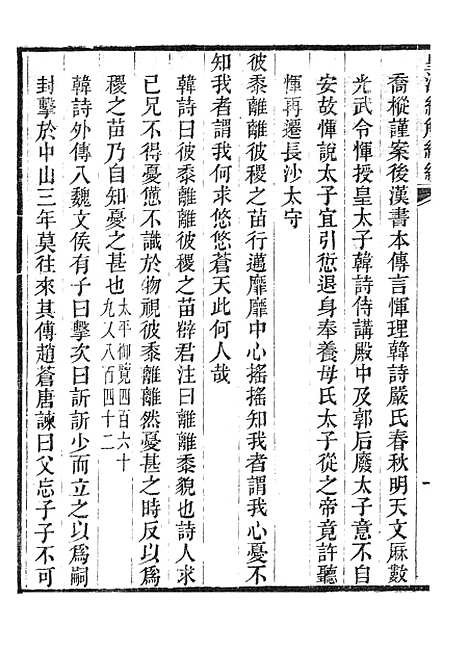 喬樅謹案後漢書本傳言惲理韓詩嚴氏春秋明天文厤數
光武令惲授皇太子韓詩侍講殿中及郭后廢太子意不自
安故惲說太子宜引愆退身奉養母氏太子從之帝竟許聽
惲再遷長沙太守
彼黍離離彼稷之苗行邁靡靡中心搖搖知我者謂我心憂不
知我者謂我何求悠悠蒼天此何人哉
韓詩曰彼黍離離彼稷之苗薛君注曰離離黍貌也詩人求
已兄不得憂懣不識於物視彼黍離離然憂甚之時反以爲
稷之苗乃自知憂之甚也太平御覽四百六十
九又八百四十二
韓詩外傳八魏文侯有子曰擊次曰訢訢少而立之以爲嗣
封擊於中山三年莫往來其傅趙蒼唐諫曰父忘子子不可